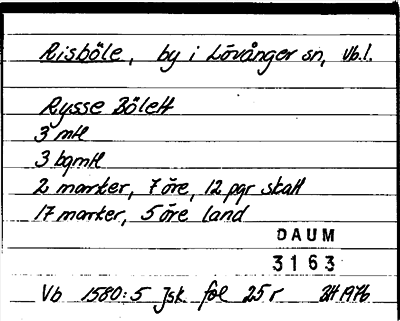 Risböle, by i Lövånger sn, Vb.l.
Rysse Bölett
3 mtl
3 bqmtl
2 marker, 7 öre, 12 pgr skatt
17 marker, 5 öre land
DAUM
3163
Vb 1580:5 Jsk fol 25 r 1976